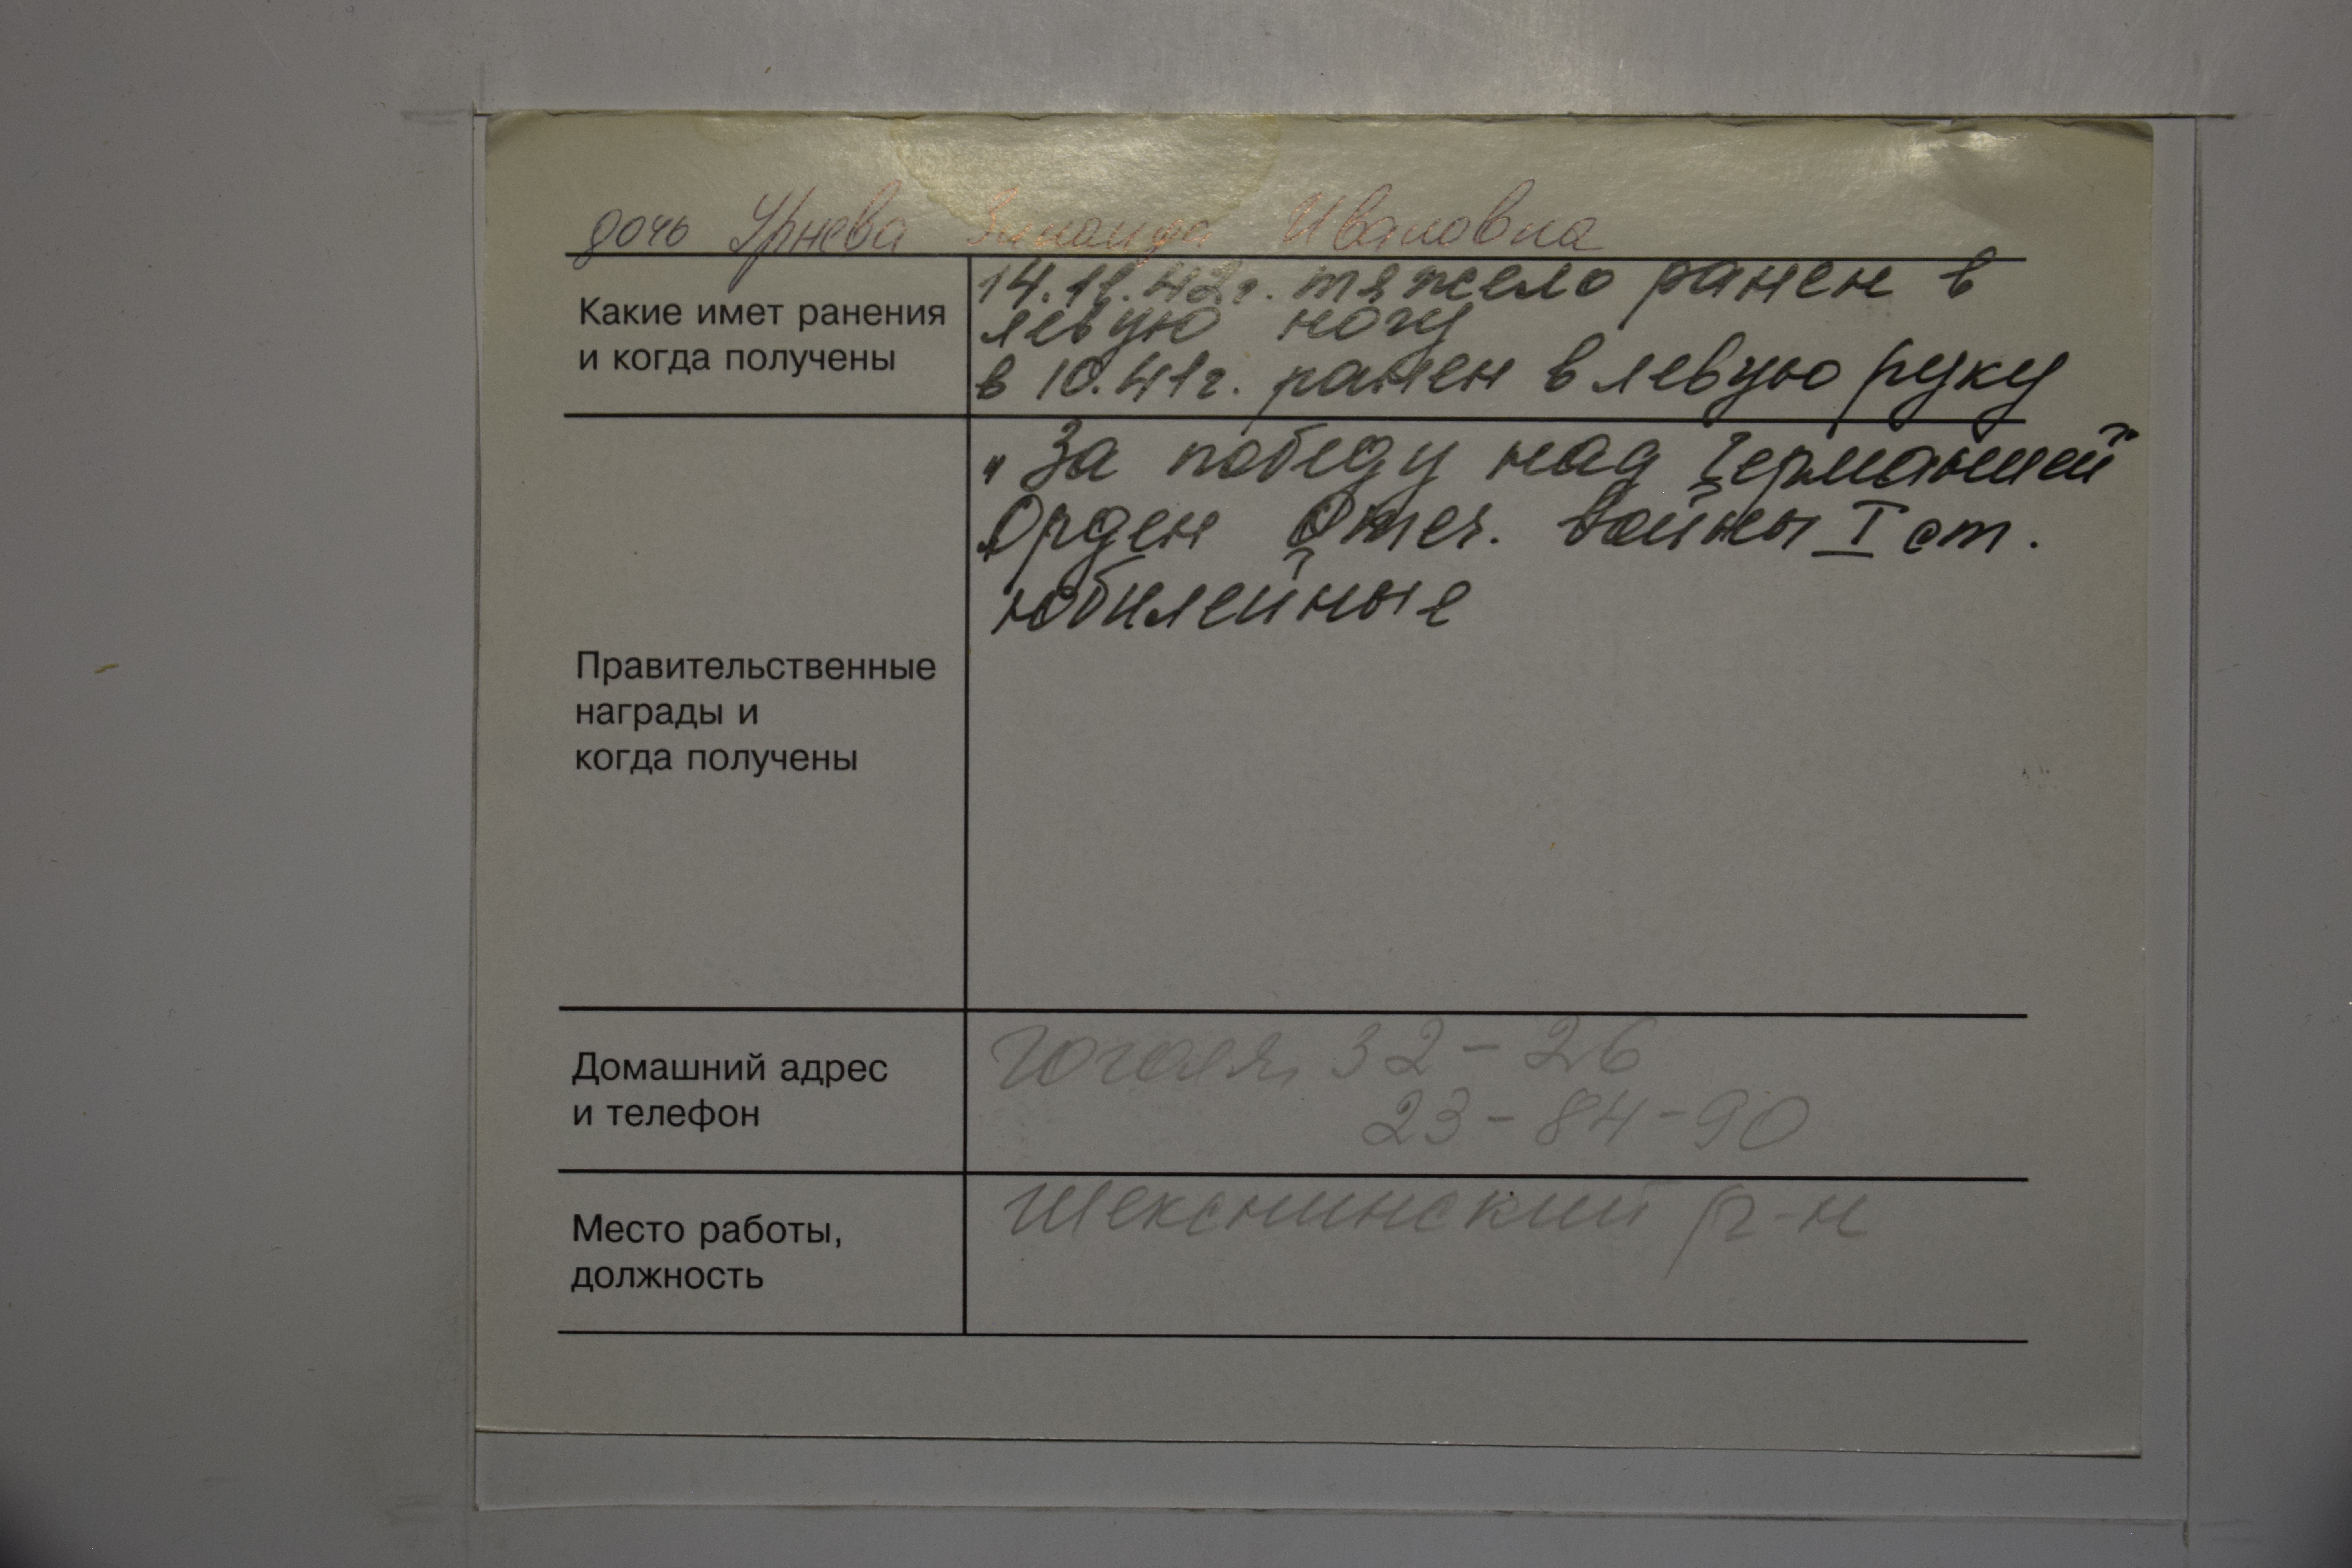 дочь Урнева Зинаида Ивановна
Какие имет ранения
и когда получены
14.11.42г. тяжело ранен в
левую ногу
в 10.41г. ранен в левую руку
Правительственные
награды и
когда получены
„За победу над Германией"
Орден Отеч. войны I ст.
юбилейные
Домашний адрес
и телефон
Гоголя, 32-26
23-84-90
Место работы,
должность
Шекснинский р-н